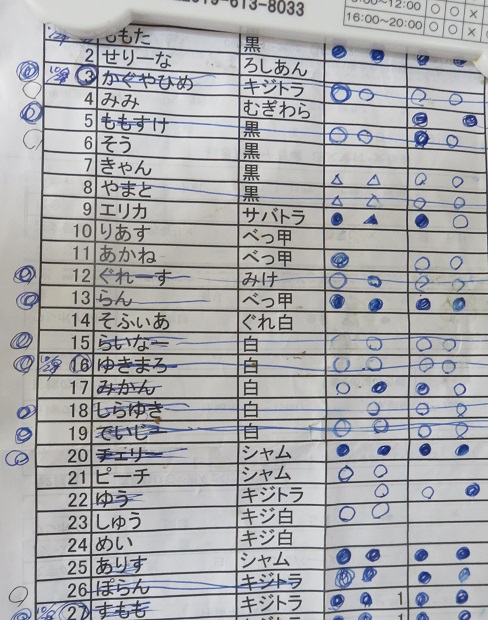 613-8033
12:00 ○ ○ ×
16:00~20:00 ○ ○ ×
ももた 黒
2 せりーな ろしあん
3 かぐやひめ キジトラ
4 みみ むぎわら
5 ももすけ 黒
6 そう 黒
7 きゃん 黒
8 やまと 黒
9 エリカ サバトラ
10 りあす べっ甲
11 あかね べっ甲
12 ぐれーす みけ
13 らん べっ甲
14 そふぃあ ぐれ白
15 らいなー 白
16 ゆきまろ 白
17 みかん 白
18 しらゆき 白
19 でいじー 白
20 チェリー シャム
21 ピーチ シャム
22 ゆう キジトラ
23 しゅう キジ白
24 めい キジ白
25 ありす シャム
26 ぽらん キジトラ
27 すもも キジトラ 1